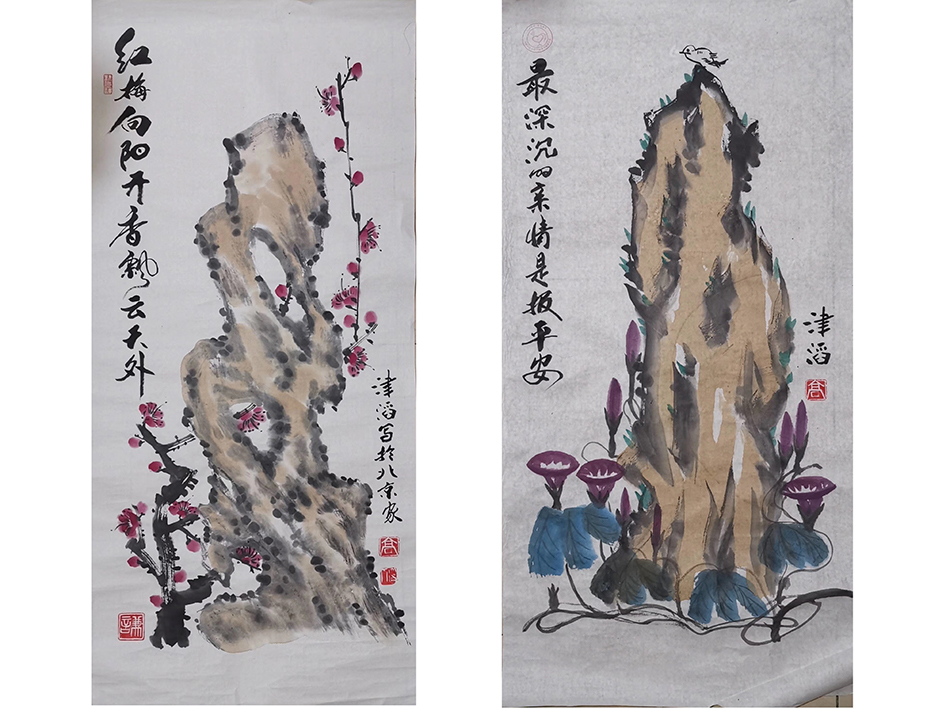 红梅向阳开香飘云天外
津滔写於北京家
高
謙
最深沉的亲情是报平安
津滔
高